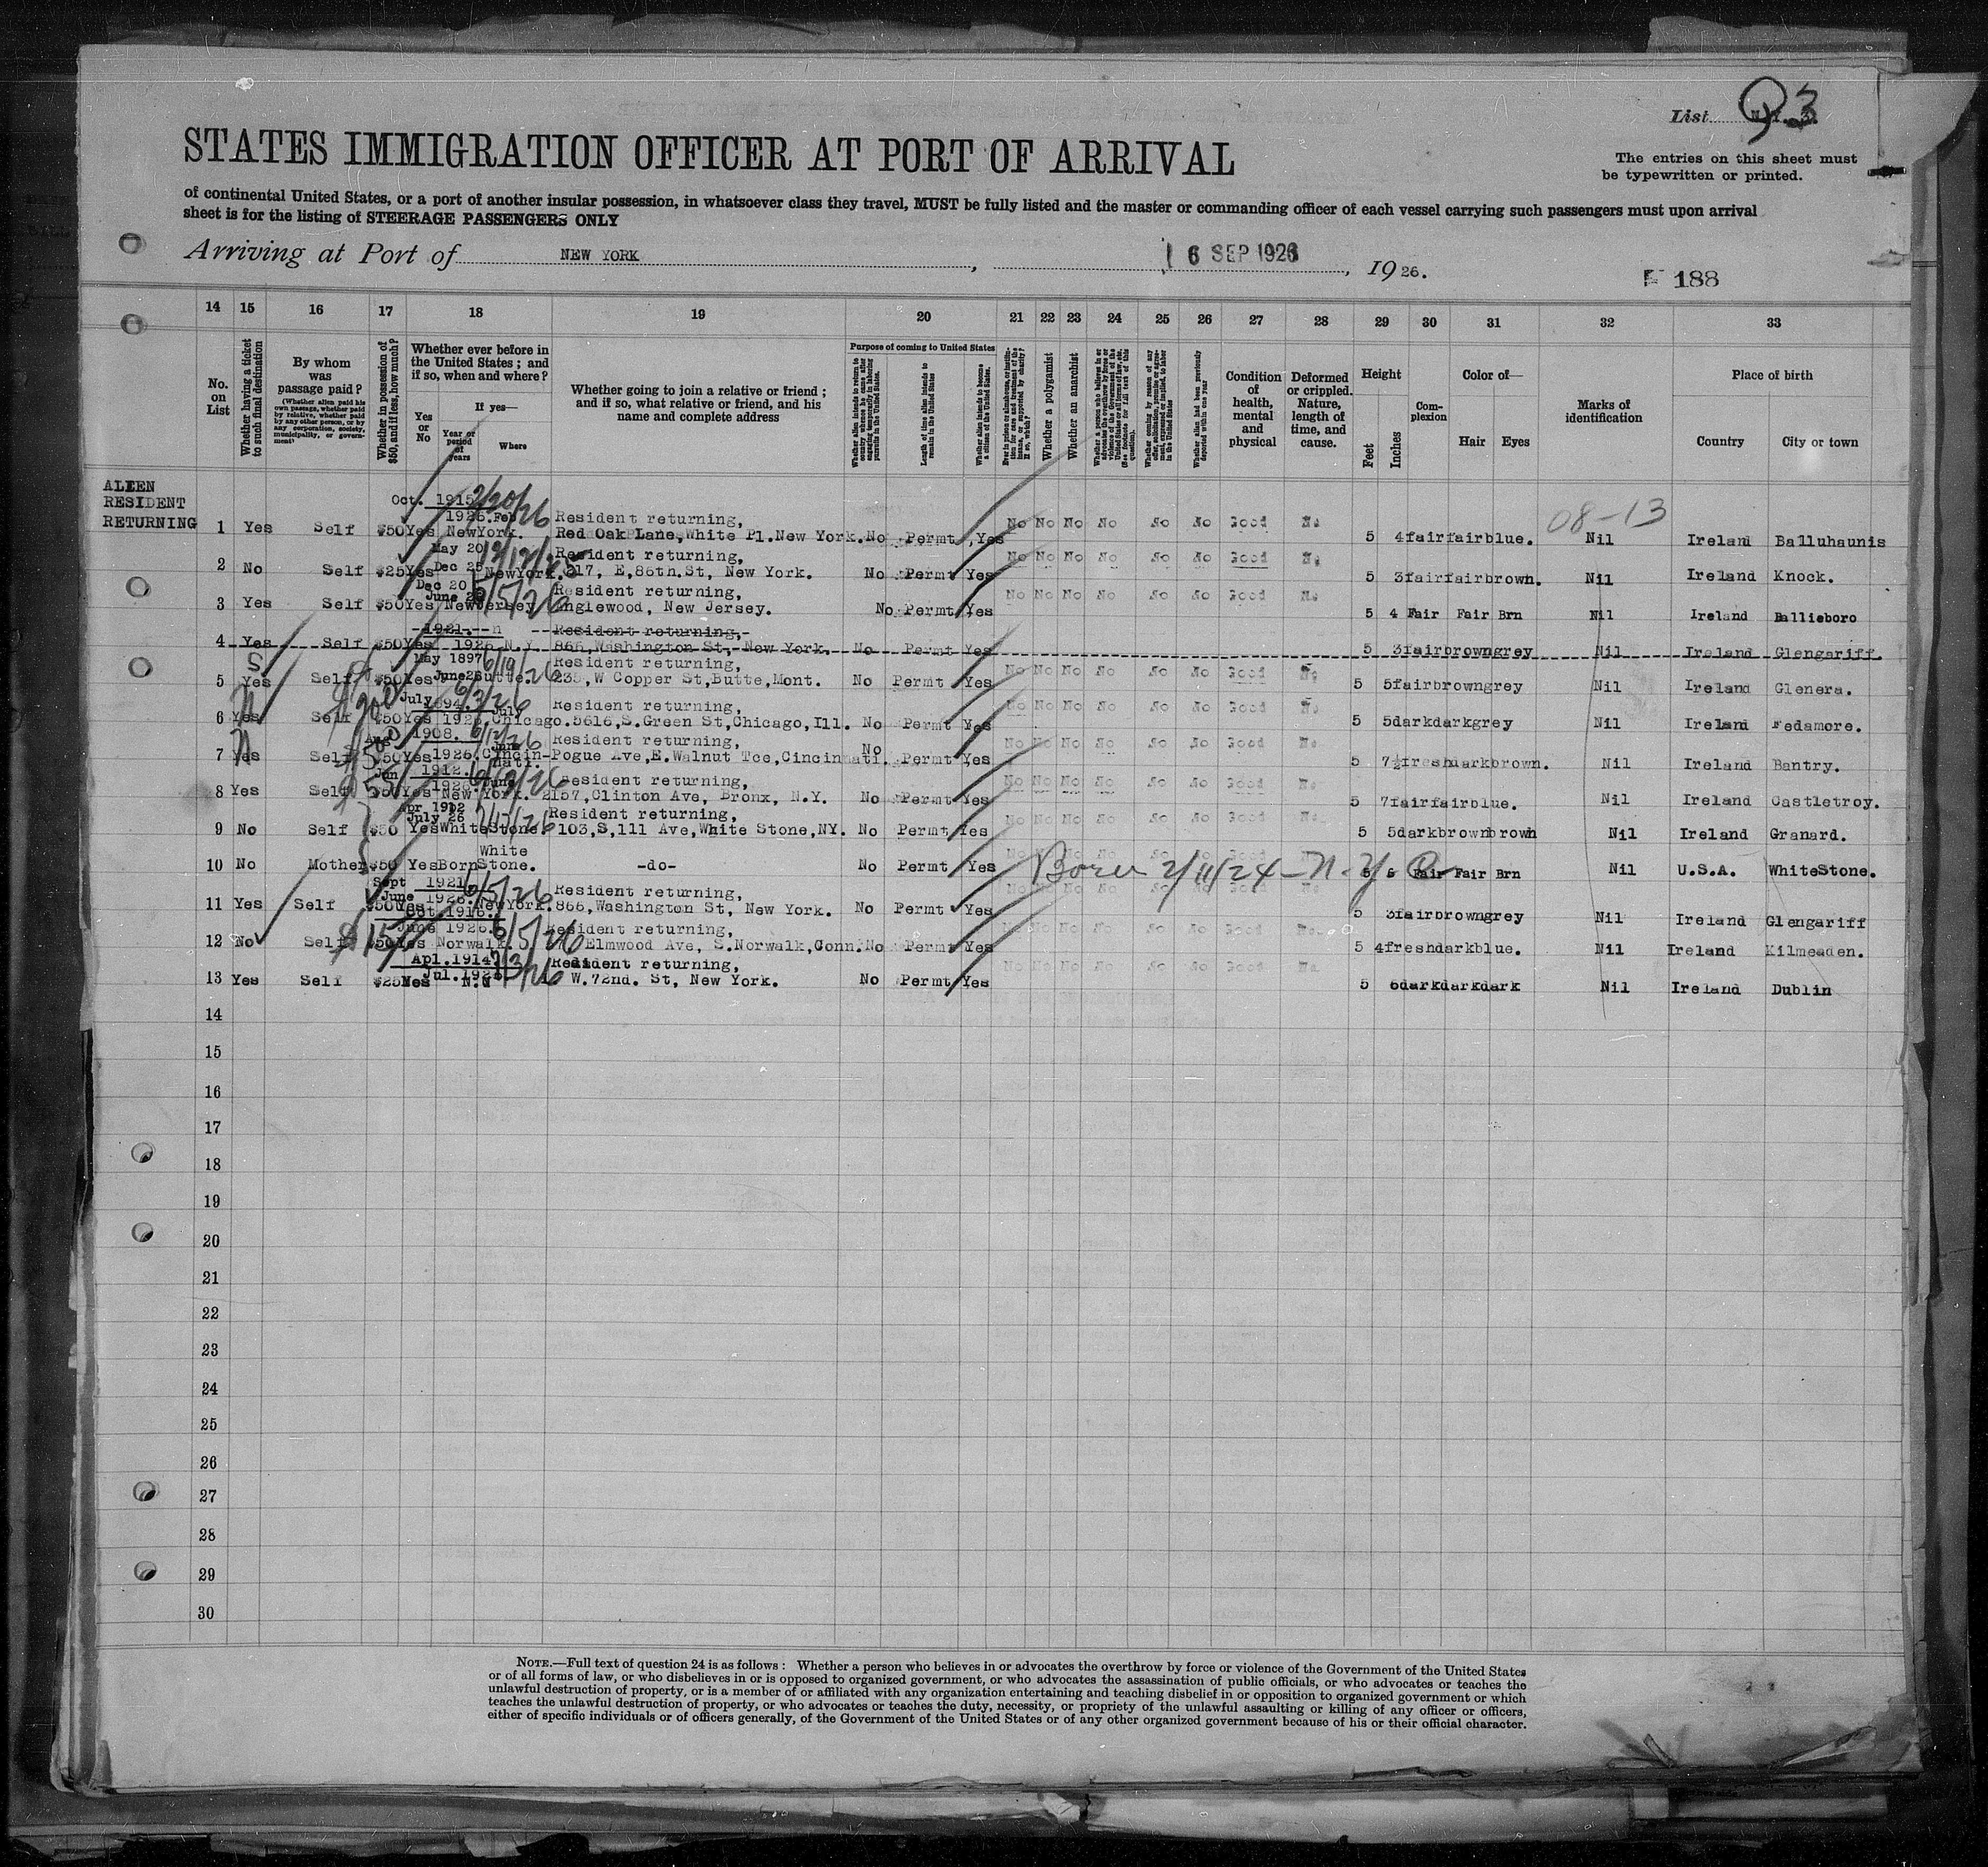 List 93
STATES IMMIGRATION OFFICER AT PORT OF ARRIVAL
The entries on this sheet must
be typewritten or printed.
of continental United States, or a port of another insular possession, in whatsoever class they travel, MUST be fully listed and the master or commanding officer of each vessel carrying such passengers must upon arrival
sheet is for the listing of STEERAGE PASSENGERS ONLY
Arriving at Port of NEW YORK, 16 SEP 1926, 1926.
188
14 15 16 17 18 19 20 21 22 23 24 25 26 27 28 29 30 31 32 33
No. on List
Whether having a ticket to such final destination
By whom was passage paid?
(Whether alien paid his own passage, whether paid by relative, whether paid by any other person, or by any corporation, society, municipality, or government)
Whether in possession of $50, and if less, how much?
Whether ever before in the United States; and if so, when and where?
Yes or No
If yes—
Year or period of years
Where
Whether going to join a relative or friend; and if so, what relative or friend, and his name and complete address
Purpose of coming to United States
Whether alien intends to return to country whence he came after engaging temporarily in laboring pursuits in the United States.
Length of time alien intends to remain in the United States
Whether alien intends to become a citizen of the United States.
Whether a polygamist
Whether an anarchist
Condition of health, mental and physical
Deformed or crippled. Nature, length of time, and cause.
Height
Feet
Inches
Complexion
Color of—
Hair
Eyes
Marks of identification
Place of birth
Country
City or town
ALIEN
RESIDENT
RETURNING
08-13
Oct. 1915 2/20/26
1926. Feb Resident returning,
1 Yes Self $50 Yes NewYork. Red Oak Lane, White Pl. New York. No Permt, Yes No No No No No No Good No 5 4 fair fair blue. Nil Ireland Balluhaunis
May 20 12/12/25 Resident returning,
2 No Self $25 Yes Dec 25 NewYork. 217, E,86th.St, New York. No Permt Yes No No No No No No Good No 5 3 fair fair brown. Nil Ireland Knock.
Dec 20 6/5/26 Resident returning,
3 Yes Self $50 Yes June 26 NewJersey Englewood, New Jersey. No Permt Yes No No No No No No Good No 5 4 Fair Fair Brn Nil Ireland Ballieboro
1921. Resident returning,
4 Yes Self $50 Yes 1926 N.Y 866, Washington St, New York. No Permt Yes 5 3 fair brown grey Nil Ireland Glengariff.
May 1897 6/19/26 Resident returning,
5 Yes Self $50 Yes June 26 Butte. 235, W Copper St, Butte, Mont. No Permt Yes No No No No No No Good No 5 5 fair brown grey Nil Ireland Glenera.
July 1894. 6/3/26 Resident returning,
6 Yes Self $50 Yes 1926, July Chicago. 5616, S. Green St, Chicago, Ill. No Permt Yes No No No No No No Good No 5 5 dark dark grey Nil Ireland Fedamore.
Aug 1908. 6/12/26 Resident returning,
7 Yes Self $50 Yes 1926. June Cincinnati. Pogue Ave, E. Walnut Tce, Cincinnati. No Permt Yes No No No No No No Good No 5 7½ fresh dark brown. Nil Ireland Bantry.
Jun 1912. Resident returning,
8 Yes Self $50 Yes 1926. June New York. 2157, Clinton Ave, Bronx, N.Y. No Permt Yes No No No No No No Good No 5 7 fair fair blue. Nil Ireland Castletroy.
Apr 1912 Resident returning,
9 No Self $50 Yes July 26 WhiteStone. 103, S, 111 Ave, White Stone, NY. No Permt Yes No No No No No No Good No 5 5 dark brown brown Nil Ireland Granard.
10 No Mother $50 Yes Born White Stone. -do- No Permt Yes Born 2/11/24 - N.Y.C. Fair Fair Brn Nil U.S.A. WhiteStone.
Sept 1921. 6/5/26 Resident returning,
11 Yes Self $50 Yes June 1926. NewYork. 866, Washington St, New York. No Permt Yes 5 3 fair brown grey Nil Ireland Glengariff
Oct 1916.
June 1926. 6/5/26 Resident returning,
12 No Self $50 Yes Norwalk. Elmwood Ave, S. Norwalk, Conn. No Permt Yes 5 4 fresh dark blue. Nil Ireland Kilmeaden.
Apl. 1914. 7/3/26 Resident returning,
13 Yes Self $25 Yes Jul. 1926 N.Y W. 72nd. St, New York. No Permt Yes 5 6 dark dark dark Nil Ireland Dublin
14
15
16
17
18
19
20
21
22
23
24
25
26
27
28
29
30
NOTE.—Full text of question 24 is as follows: Whether a person who believes in or advocates the overthrow by force or violence of the Government of the United States
or of all forms of law, or who disbelieves in or is opposed to organized government, or who advocates the assassination of public officials, or who advocates or teaches the
unlawful destruction of property, or is a member of or affiliated with any organization entertaining and teaching disbelief in or opposition to organized government or which
teaches the unlawful destruction of property, or who advocates or teaches the duty, necessity, or propriety of the unlawful assaulting or killing of any officer or officers,
either of specific individuals or of officers generally, of the Government of the United States or of any other organized government because of his or their official character.